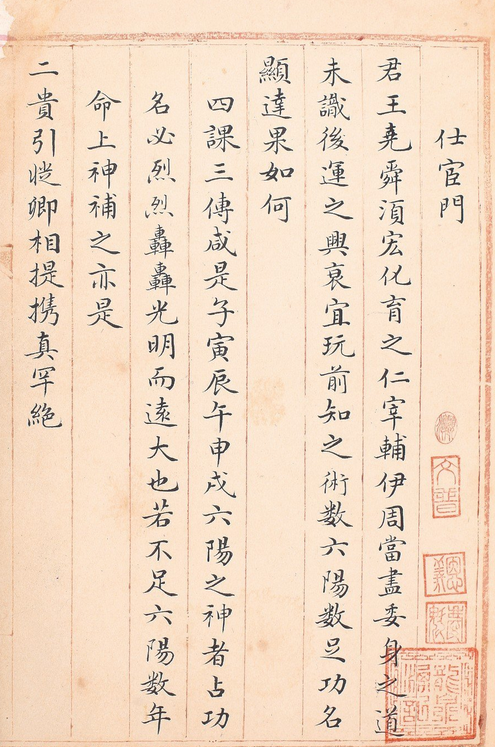 仕宦門
君王堯舜須宏化育之仁宰輔伊周當盡委身之道
未識後運之興衰宜玩前知之術數六陽數足功名
顯達果如何
四課三傳咸是子寅辰午申戌六陽之神者占功
名必烈烈轟轟光明而遠大也若不足六陽數年
命上神補之亦是
二貴引從卿相提携真罕絶